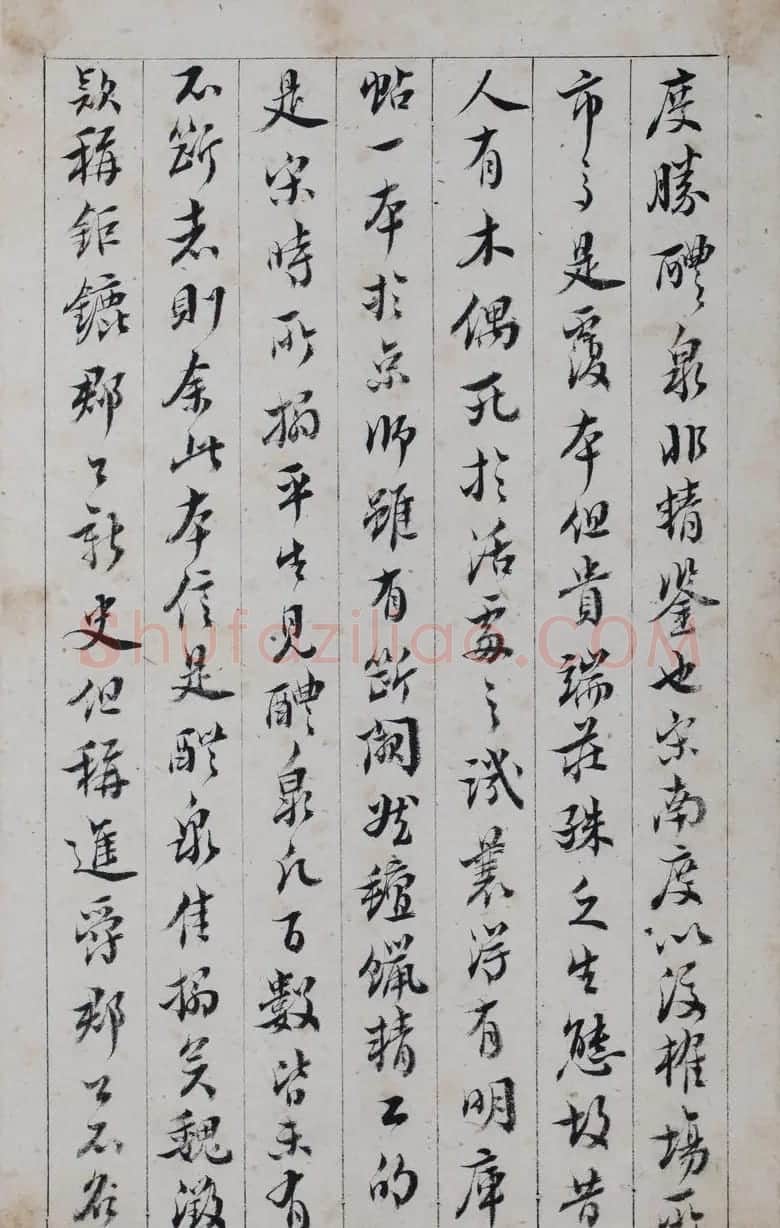 度勝醴泉非精鑒也宋南度以後榷場所
市多是覆本但貴端莊殊乏生態故昔
人有木偶死於活處之譏曩得有明庫
帖一本於京師雖有斷闕然氊蠟精工的
是宋時所搨平生見醴泉凡百數皆未有
不斷者則余此本信是醴泉佳搨矣魏徵
款稱鉅鹿郡公新史但稱進爵郡公不
Shufaziliao.COM